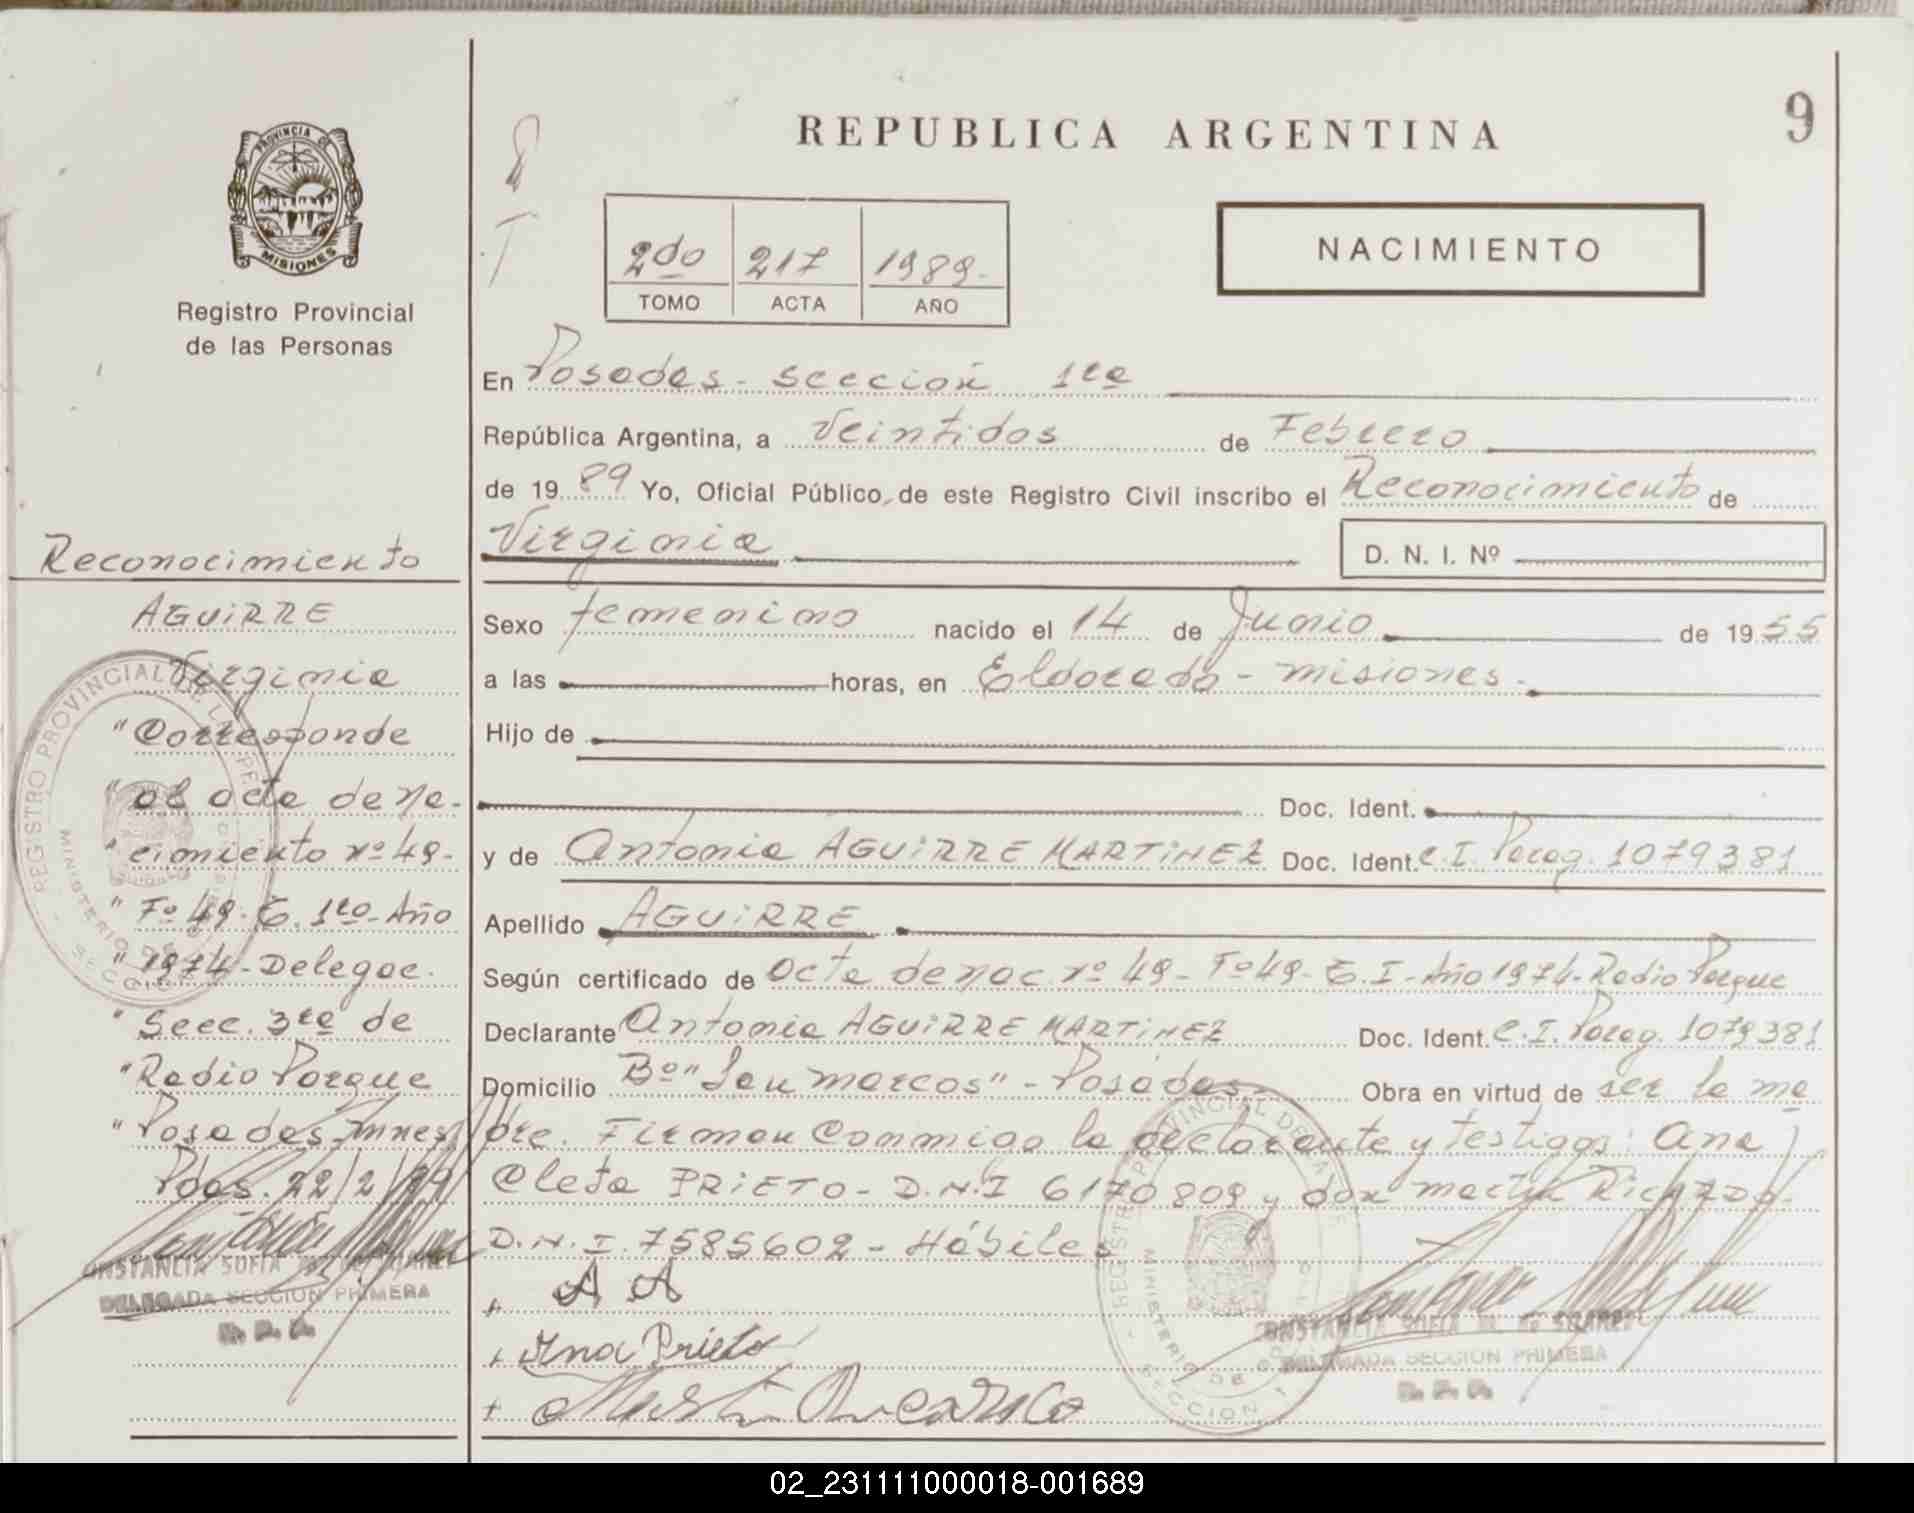 9
REPUBLICA ARGENTINA
PROVINCIA DE
MISIONES
Registro Provincial
de las Personas
2do 217 1989-
TOMO ACTA AÑO
NACIMIENTO
En Posadas - Sección 1ra
República Argentina, a Veintidos de Febrero
de 1989 Yo, Oficial Público, de este Registro Civil inscribo el Reconocimiento de
Virginia D. N. I. Nº
Sexo femenino nacido el 14 de Junio de 1955
a las horas, en Eldorado - misiones.
Hijo de
Doc. Ident.
y de Antonia AGUiRRE MARTiNEZ Doc. Ident. C.I. Parag. 1079381
Apellido AGUiRRE
Según certificado de acta de nac. nº 49 - Fº 49 - T. I - Año 1974 - Radio Parque
Declarante Antonia AGUiRRE MARTiNEZ Doc. Ident. C.I. Parag. 1079381
Domicilio Bº "San marcos" - Posadas - Obra en virtud de ser la ma
dre. Firman Conmigo la declarante y testigos: Ana
Cleta PRiETO - D.N.I 6170809 y don martin RiCARDO -
D.N.I. 7585602 - Hábiles
+ A A
+ Ana Prieto
+
CONSTANCIA SOFIA M. de SUAREZ
DELEGADA SECCION PRIMERA
R. P. P.
Reconocimiento
AGUiRRE
Virginia
"Corresponde
"al acta de Na-
"cimiento nº 49-
"Fº 49- T. 1ro- Año
"1974 - Delegac.
"Secc. 3ra de
"Radio Parque
"Posadas, Mnes."
Pdas. 22/2/89
CONSTANCIA SOFIA M. de SUAREZ
DELEGADA SECCION PRIMERA
R. P. P.
REGISTRO PROVINCIAL DE LAS PE
MINISTERIO DE GOBIERNO
SECCION 1
02_231111000018-001689